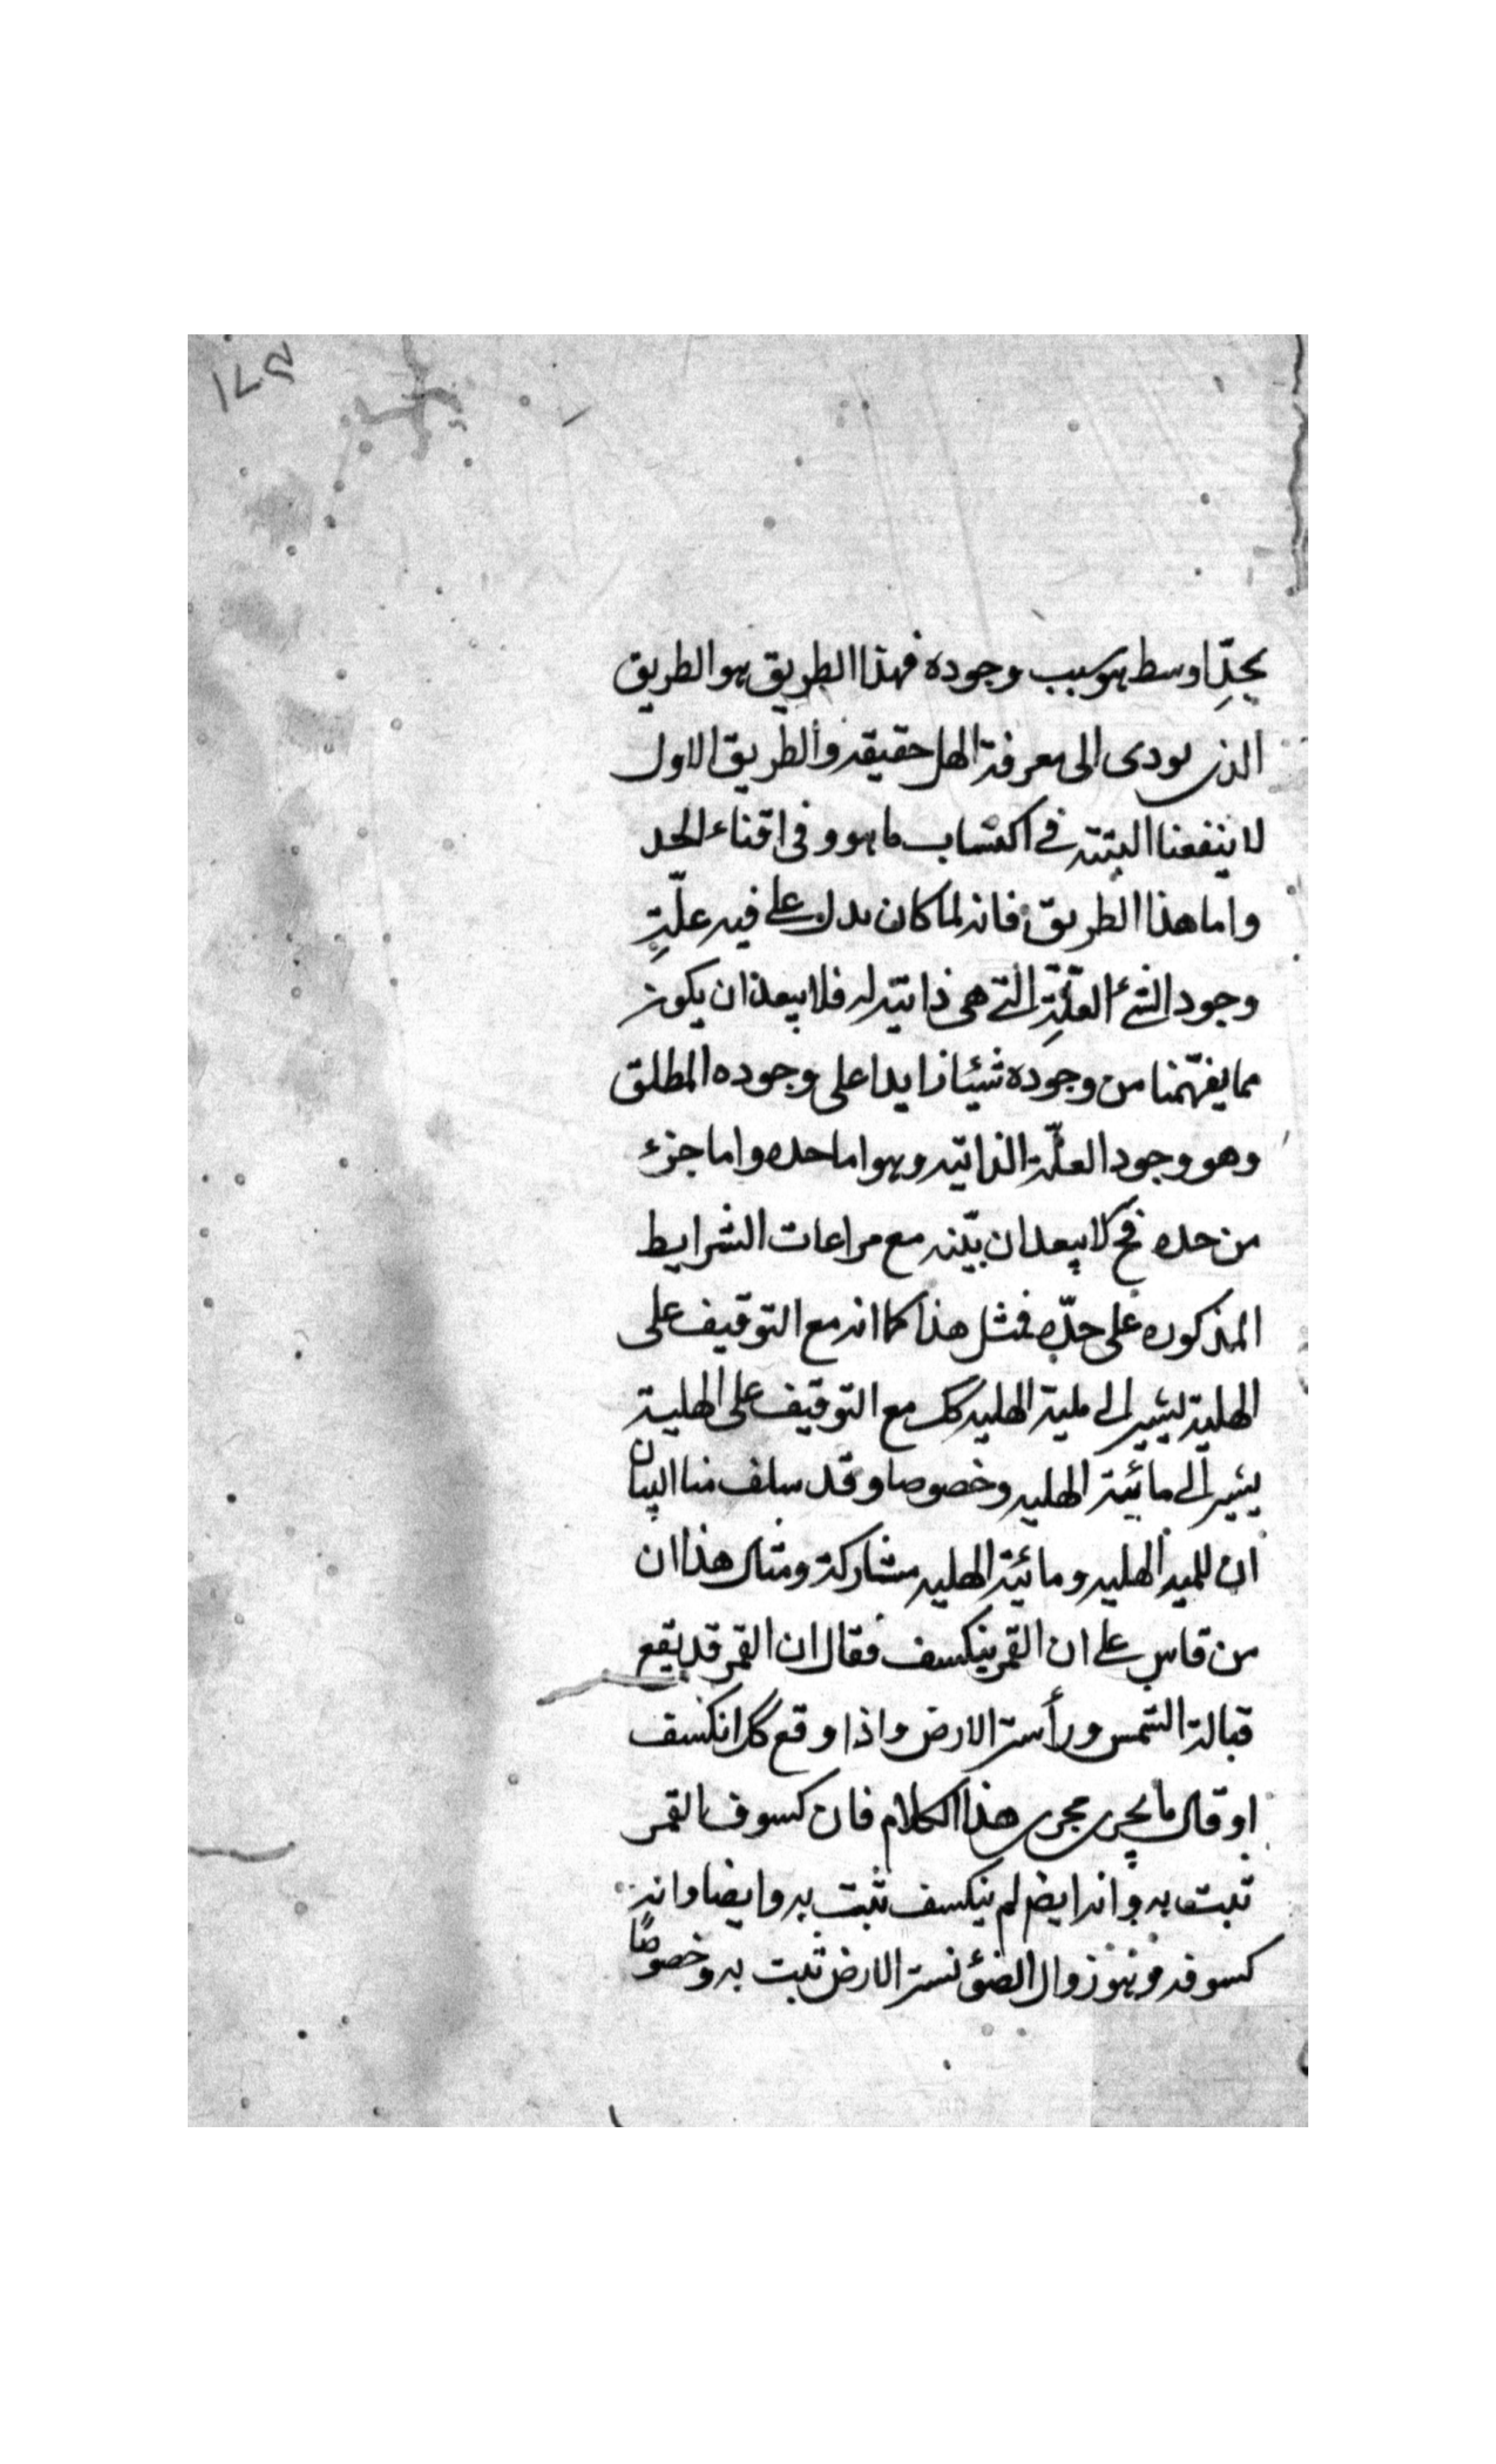 ١٧٣
بحدّ اوسط هو سبب وجوده فهذا الطريق هو الطريق
الذى يودى الى معرفة الهل حقيقه والطريق الاول
لا ينفعنا البتته فى اكتساب ما هو وفى اقتناء الحد
واما هذا الطريق فانه لما كان يدل على فيه علّةِ
وجود الشئ العلّةِ التى هى ذاتيّه له فلا يبعد ان يكون
مما يفهّمنا من وجوده شيئا زايدا على وجوده المطلق
وهو وجود العلّة الذاتيّه وهو اما حده واما جزء
من حده فح لا يبعد ان بيّنه مع مراعات الشرايط
المذكوره على حدّه فمثل هذا كما انه مع التوقيف على
الهلية يشير الى لمية الهليه كك مع التوقيف على الهلية
يشير الى مائية الهليه وخصوصا وقد سلف منا البيان
ان للمية الهليه ومائية الهليه مشاركة ومثال هذا ان
من قاس على ان القمر ينكسف فقال ان القمر قد يقع
قبالة الشمس و الارض واذا وقع كك انكسف
او قال ما يجرى مجرى هذا الكلام فان كسوف القمر
ثبت به وانه ايض لم ينكسف ثبت به وايضا وانه
كسوفه زوال الضوء الارض ثبت به وخصوصًا